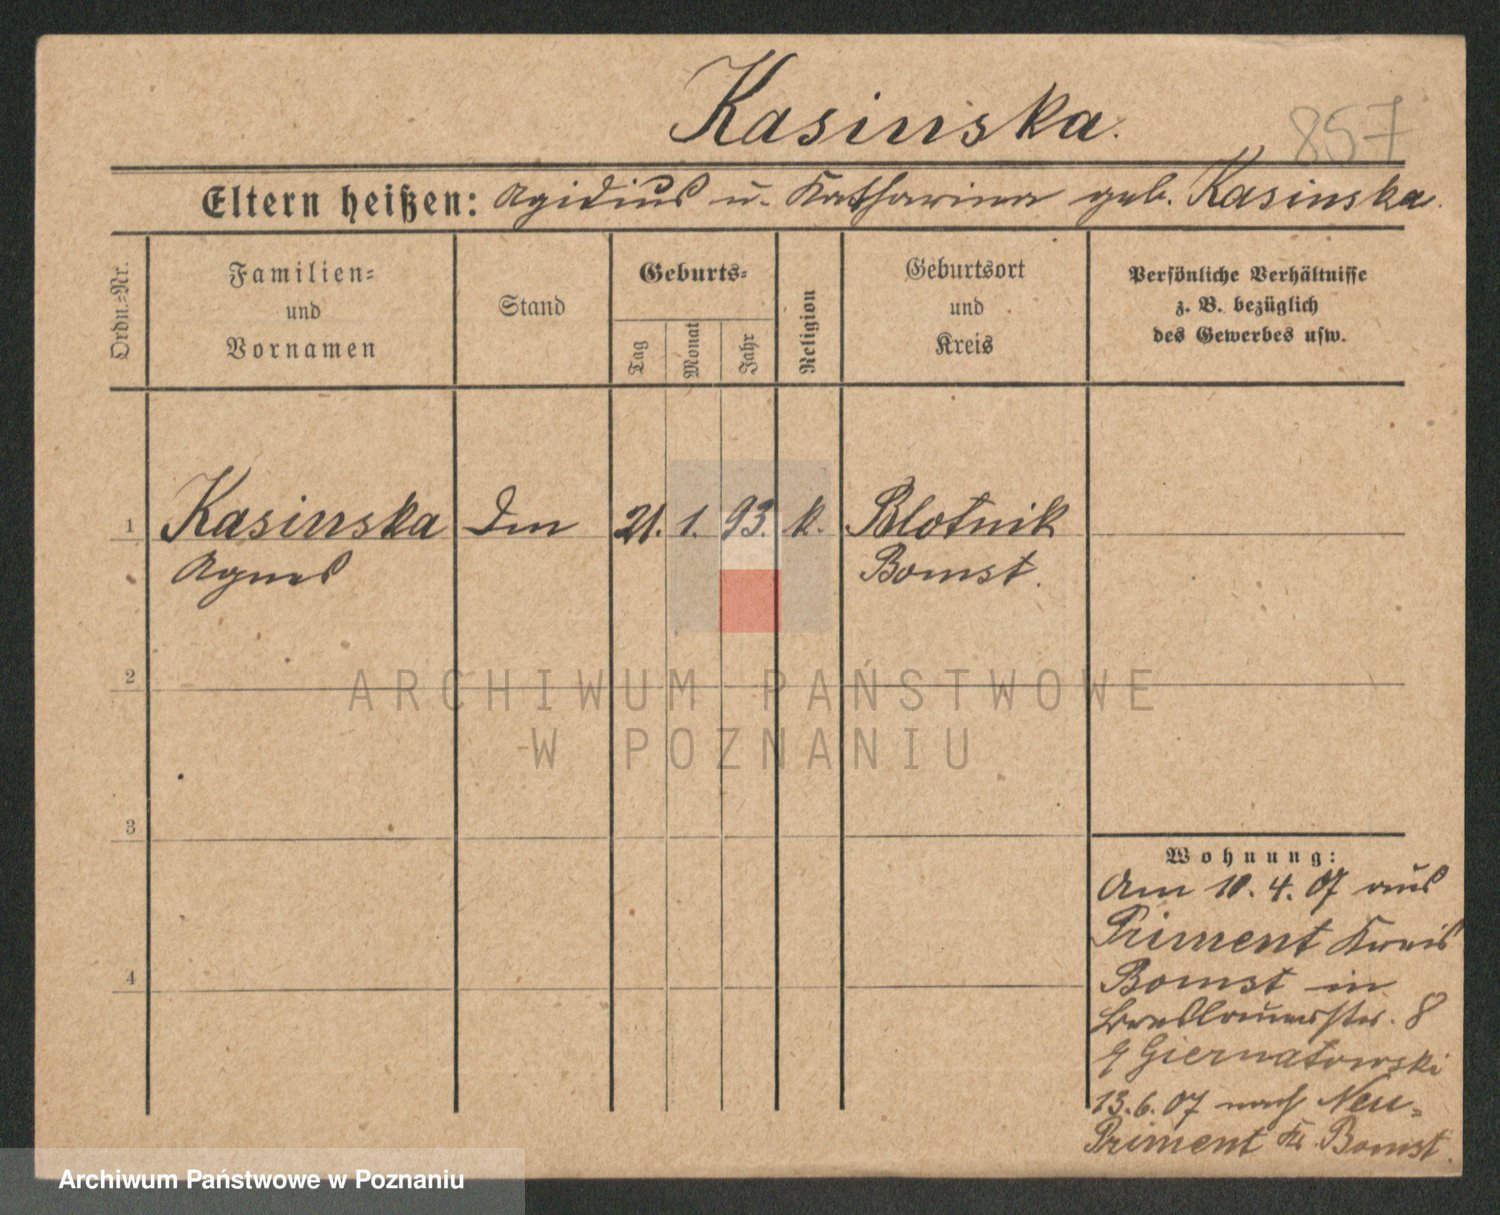 Kasinska.
857
Eltern heißen: Agidius u. Katharina geb. Kasinska.
Ordn.=Nr.
Familien=
und
Vornamen
Stand
Geburts=
Tag
Monat
Jahr
Religion
Geburtsort
und
Kreis
Persönliche Verhältnisse
z. B. bezüglich
des Gewerbes usw.
1 Kasinska 21. 1. 93. k. Blotnik
Agnes Bomst.
2
3
4
Wohnung:
Am 10. 4. 07 aus
Priment Kreis
Bomst in
Breslauerstr. 8
Giernatowski
13. 6. 07 nach Neu=
Priment Kr. Bomst.
ARCHIWUM PAŃSTWOWE
W POZNANIU
Archiwum Państwowe w Poznaniu